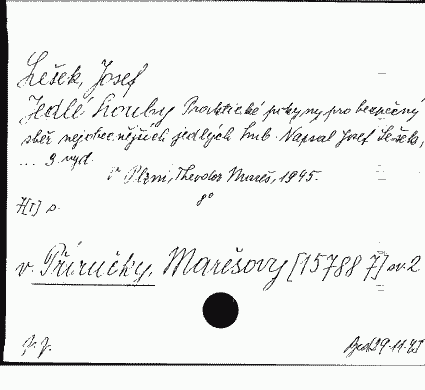 Lešek, Josef
Jedlé houby Praktické pokyny pro bezpečný
sběr nejobecnějších jedlých hub. Napsal Josef Lešek,
... 3. vyd.
V Plzni, Theodor Mareš, 1945.
8°
7[1] s.
v. Příručky, Marešovy [15788 7] sv. 2